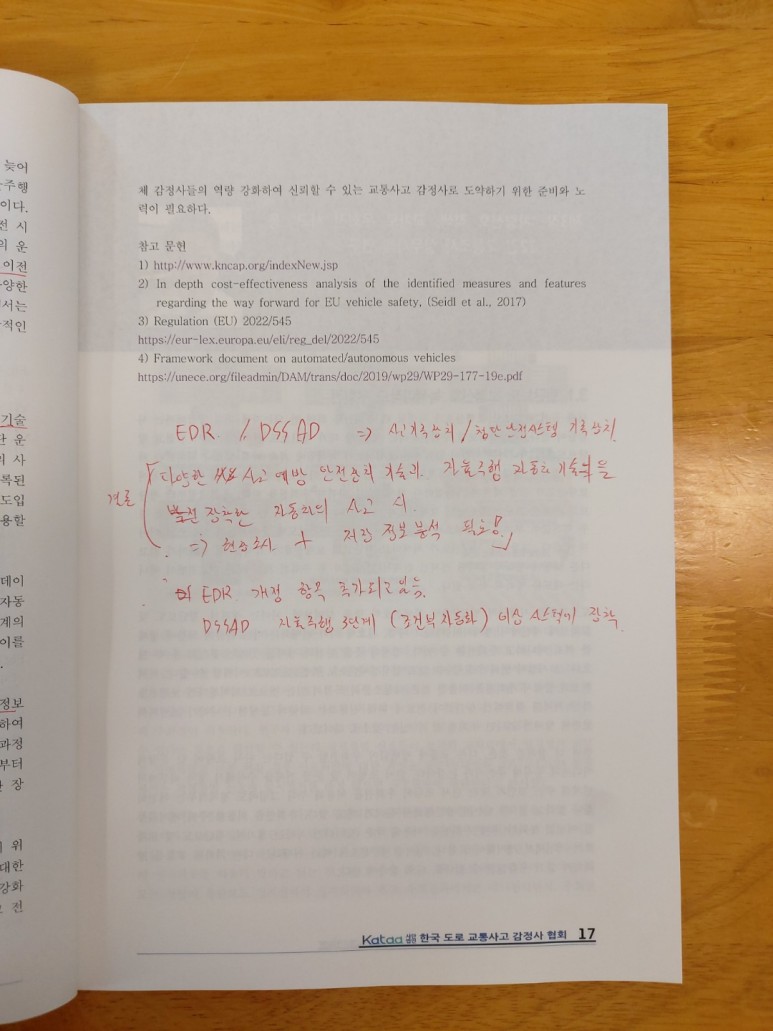 늦어
주행
이다.
전 시
의 운
이전
양한
서는
적인
기술
운
사
록된
도입
용할
데이
자동
계의
이를
정보
하여
과정
부터
장
위
대한
강화
전
체 감정사들의 역량 강화하여 신뢰할 수 있는 교통사고 감정사로 도약하기 위한 준비와 노
력이 필요하다.
참고 문헌
1) http://www.kncap.org/indexNew.jsp
2) In depth cost-effectiveness analysis of the identified measures and features
regarding the way forward for EU vehicle safety, (Seidl et al., 2017)
3) Regulation (EU) 2022/545
https://eur-lex.europa.eu/eli/reg_del/2022/545
4) Framework document on automated/autonomous vehicles
https://unece.org/fileadmin/DAM/trans/doc/2019/wp29/WP29-177-19e.pdf
EDR / DSSAD => 사고기록장치/첨단안전시스템 기록장치
다양한 사고 예방 안전장치 기술과 자율주행 자동차 기술을
결론
장착한 자동차의 사고 시
=> 현장조사 + 저장 정보 분석 필요!
EDR 개정 항목 추가되고 있음.
DSSAD 자율주행 3단계 (조건부 자동화) 이상 시스템에 장착
Kataa 사단법인 한국 도로 교통사고 감정사 협회 17